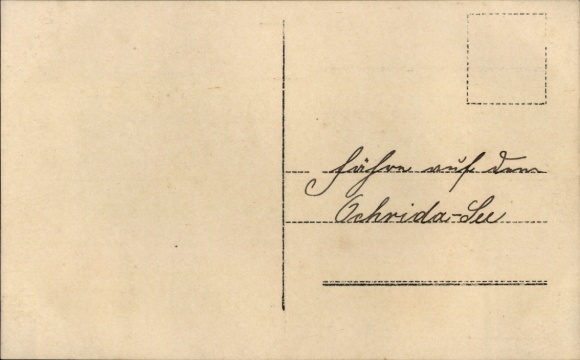 Fähre auf dem
Ochrida-See